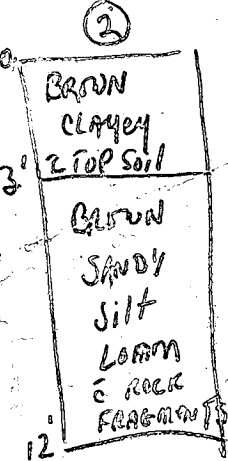 2
0
BROWN
CLAYEY
2 TOP SOIL
3'
BROWN
SANDY
Silt
LOAM
c̄ ROCK
FRAGMENTS
12'